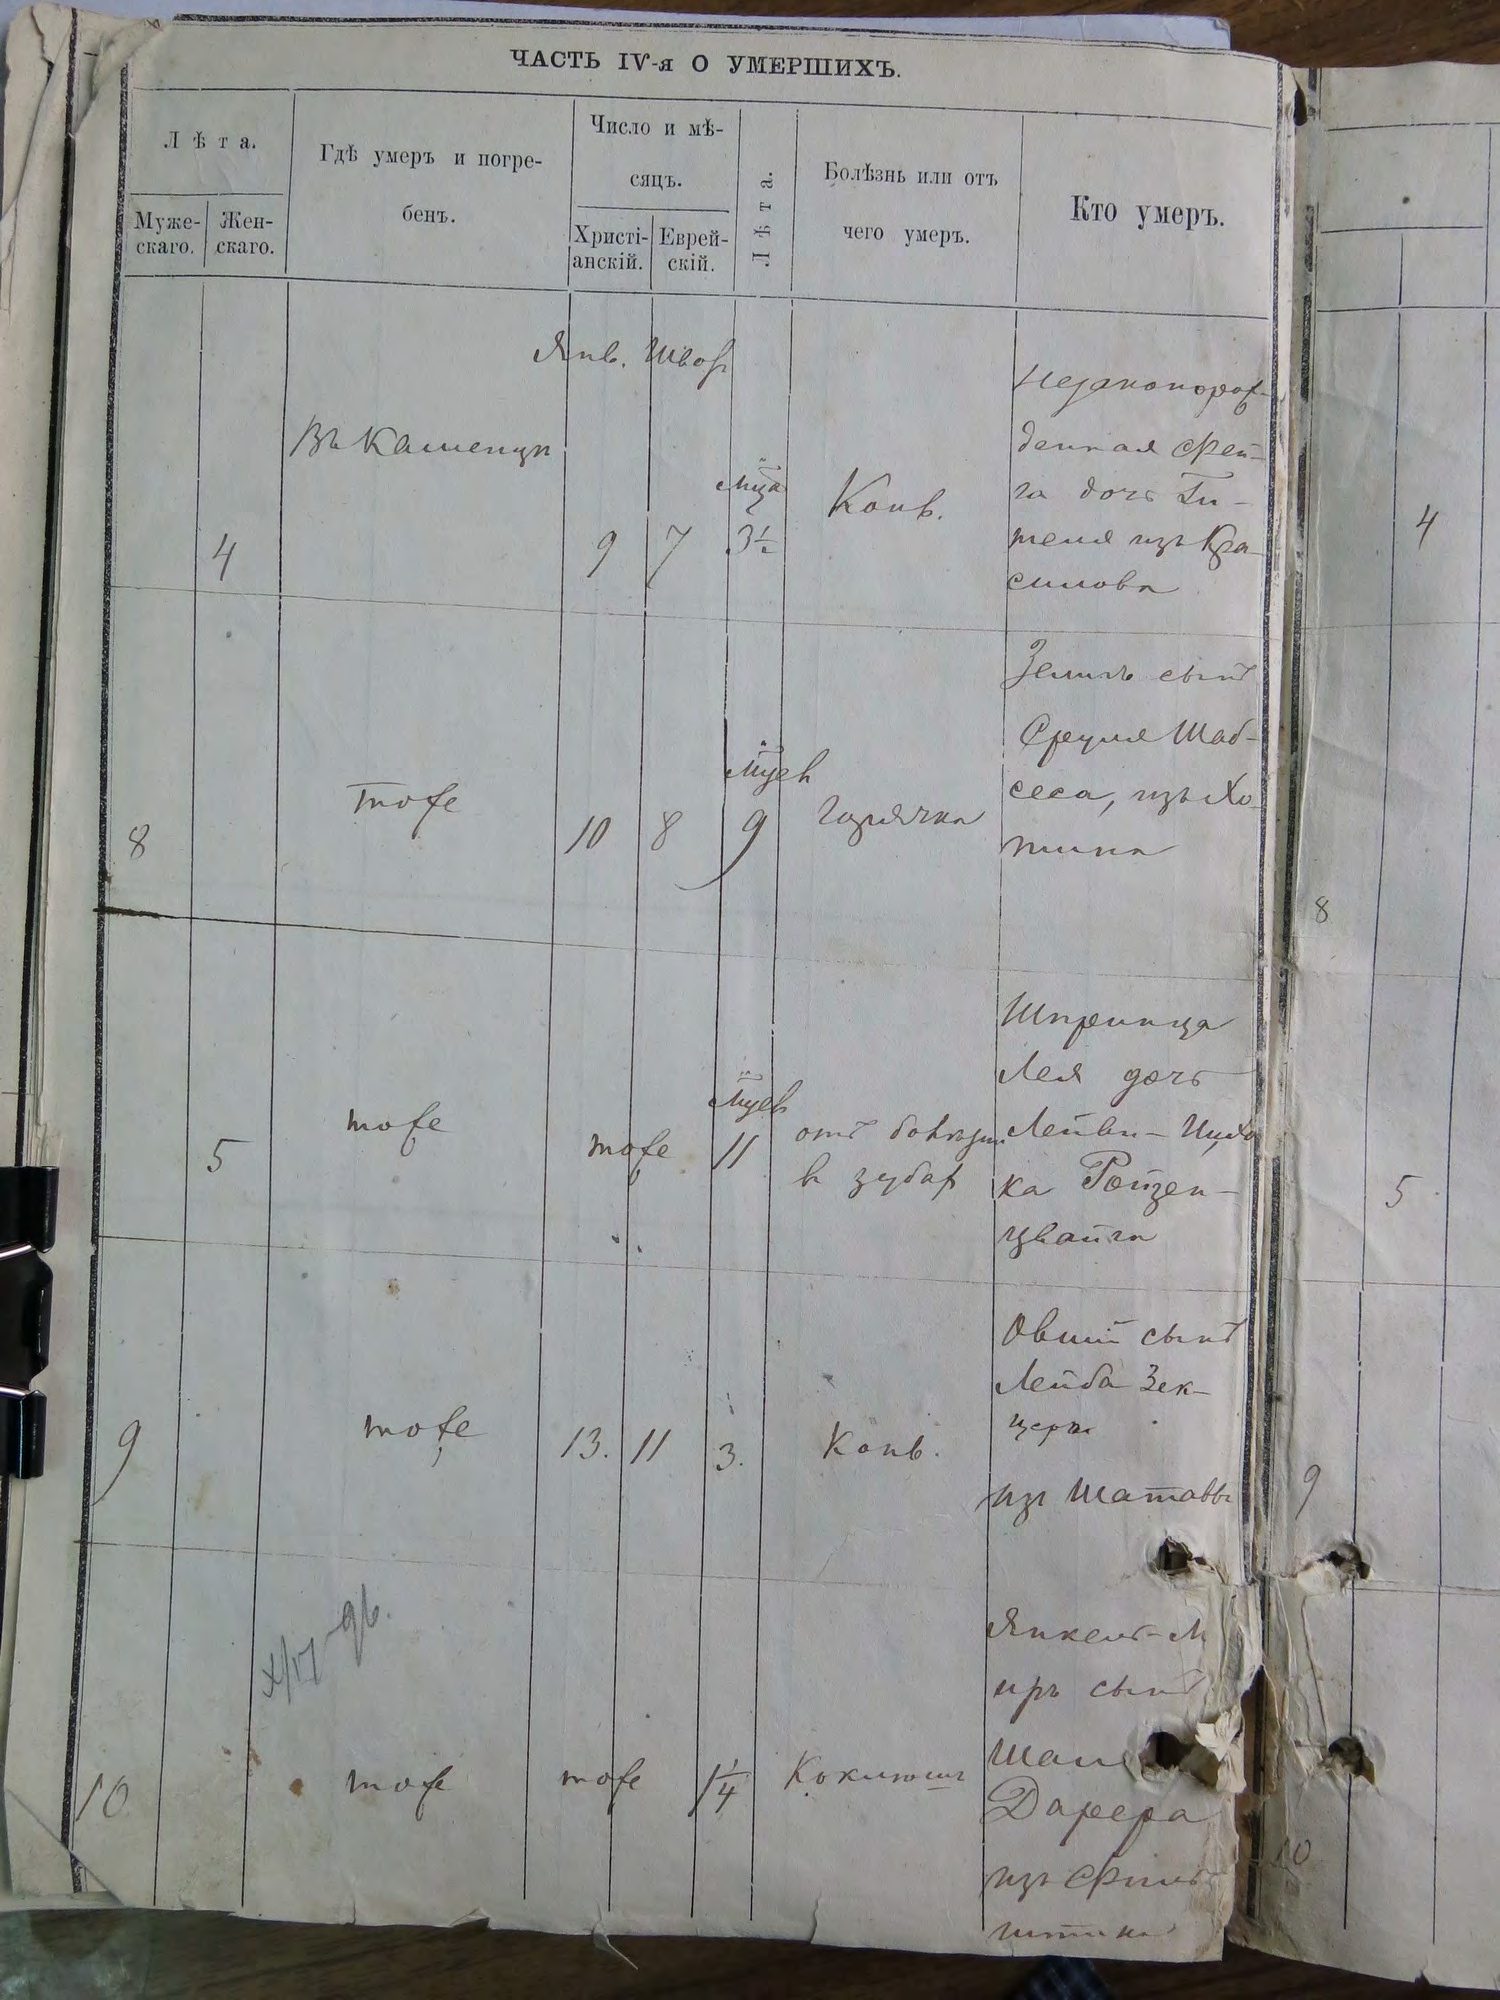 ЧАСТЬ IV-я О УМЕРШИХЪ.
Лѣта.
Муже-
скаго.
Жен-
скаго.
Гдѣ умеръ и погре-
бенъ.
Число и мѣ-
сяцъ.
Христі-
анскій.
Еврей-
скій.
Лѣта.
Болѣзнь или отъ
чего умеръ.
Кто умеръ.
Янв. Швот
4
Въ Каменцѣ
9
7
мца
3½
Конв.
Незаконорож-
денная Фей-
га дочь Ги-
теля изъ Кра-
силова
8
тоже
10
8
мцев
9
горячка
Зейлик сынъ
Сруля Шаб-
сеса, изъ Хо-
тина
5
тоже
тоже
мцев
11
отъ болѣзни
в зубах
Шпринца
Лея дочь
Лейви-Ицхо
ка Ройзен-
цвайга
9
тоже
13.
11
3.
Конв.
Овший сынъ
Лейба Зек-
цера
изъ Шатавы
10
тоже
тоже
1¼
Коклюш
Янкель-М
иръ сынъ
Шам
Дарера
изъ Фель
штина
4
8
5
9
10